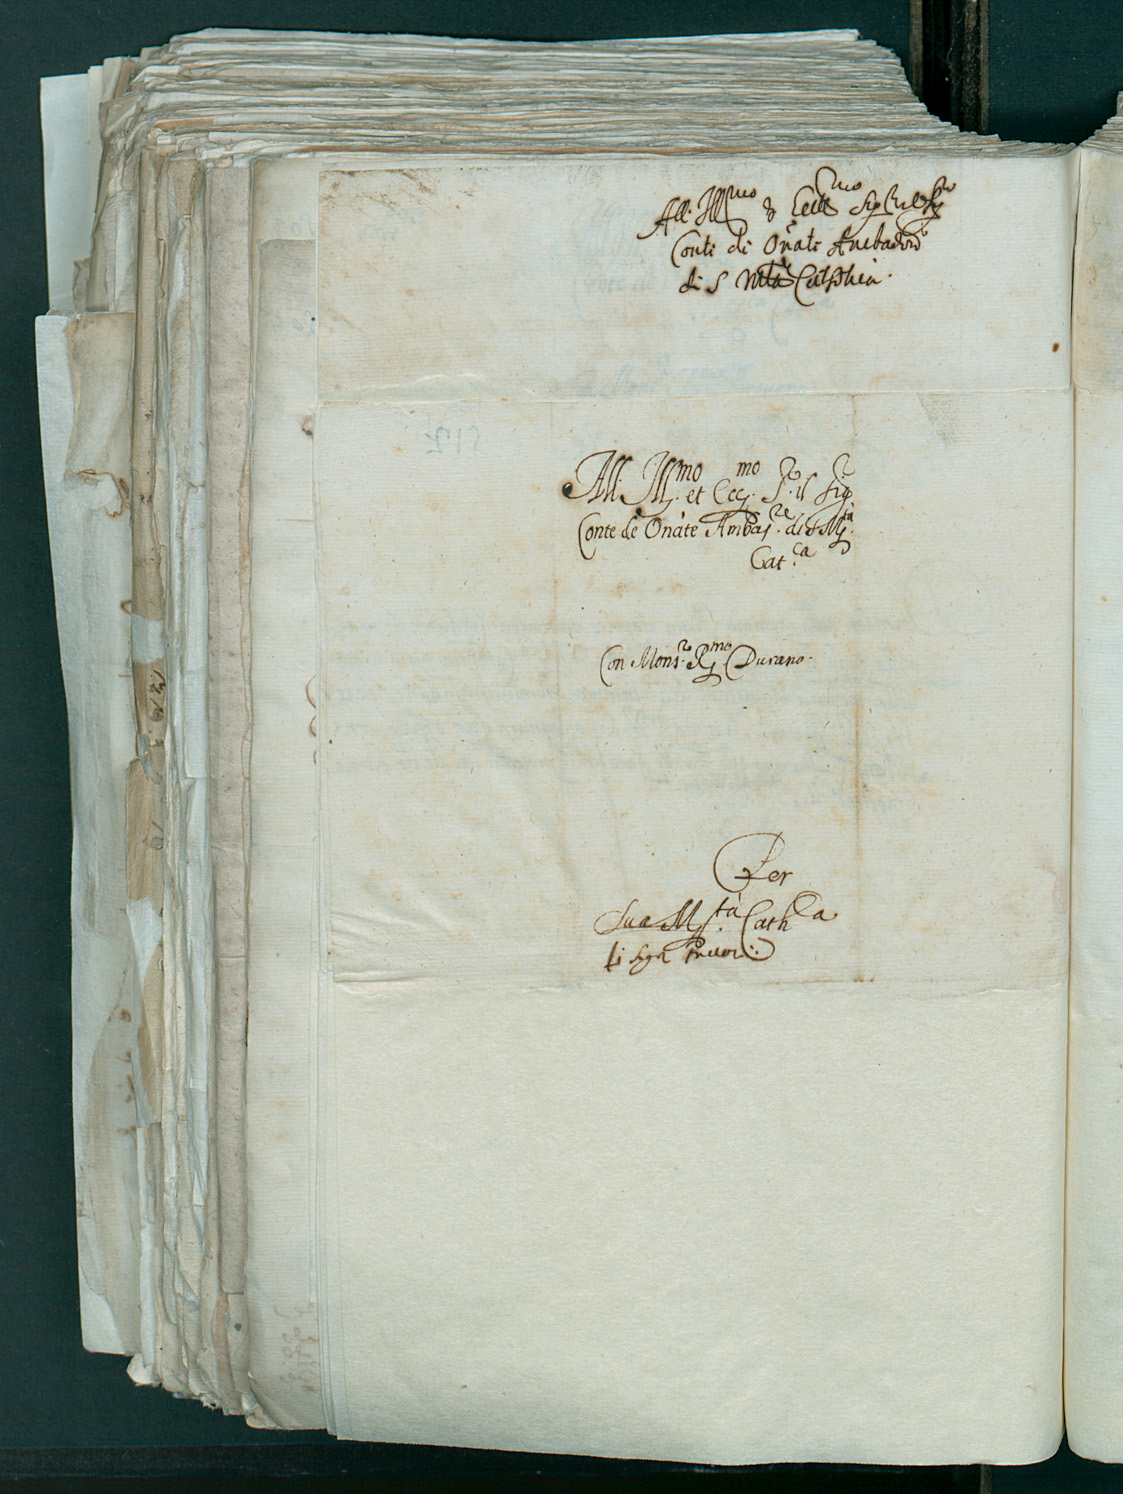 All. Ill.mo & Ecc.mo Sig.
Conte di Oñate Ambador
di S Mtà Catholica.
All. Ill.mo et Ecc.mo S.r il Sig.r
Conte de Onàte Ambas.re di S M.tà
Cat.ca
Con Mons.r R.mo Durano.
Per
Sua M.tà Cath.ca